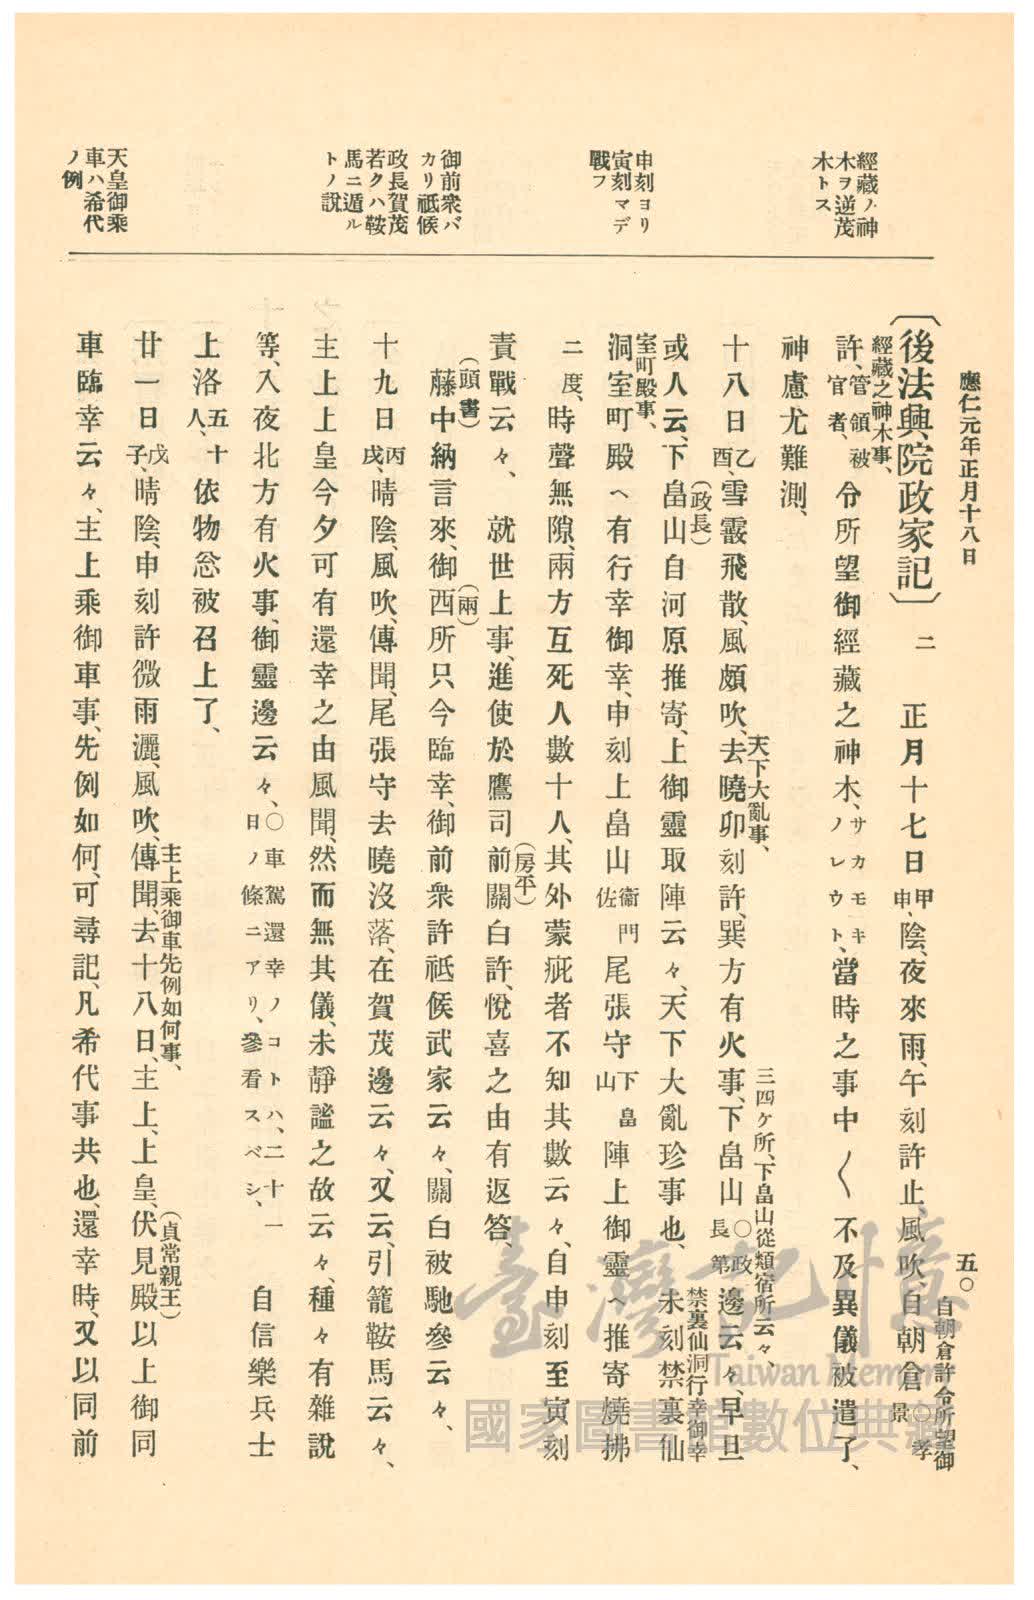 應仁元年正月十八日
五〇
經藏ノ神
木ヲ逆茂
木トス
申刻ヨリ
寅刻マデ
戰フ
御前衆バ
カリ祇候
政長賀茂
若クハ鞍
馬ニ遁ル
トノ說
天皇御乘
車ハ希代
ノ例
〔後法興院政家記〕 二 正月十七日甲申、陰、夜來雨、午刻許止、風吹、自朝倉〇孝景
自朝倉許令所望御
經藏之神木事、
許、管領被官者、令所望御經藏之神木、サカモキノレウト、當時之事中〱不及異儀被遣了、
神慮尤難測、
十八日乙酉、雪霰飛散、風頗吹、去曉卯刻許、巽方有火事、下畠山〇政長第邊云々、早旦
天下大亂事、
三四ケ所、下畠山從類宿所云々、
或人云、下畠山(政長)自河原推寄、上御靈取陣云々、天下大亂珍事也、未刻禁裏仙
禁裏仙洞行幸御幸
室町殿事、
洞室町殿ヘ有行幸御幸、申刻上畠山衞門佐尾張守下畠山陣上御靈ヘ推寄燒拂
二度、時聲無隙、兩方互死人數十人、其外蒙疵者不知其數云々、自申刻至寅刻
責戰云々、就世上事、進使於鷹司前關白(房平)許、悅喜之由有返答、
(頭書)
藤中納言來、御西(兩)所只今臨幸、御前衆許祗候武家云々、關白被馳參云々、
十九日丙戌、晴陰、風吹、傳聞、尾張守去曉沒落、在賀茂邊云々、又云、引籠鞍馬云々、
主上上皇今夕可有還幸之由風聞、然而無其儀、未靜謐之故云々、種々有雜說
等、入夜北方有火事、御靈邊云々、〇車駕還幸ノコトハ、二十一日ノ條ニアリ、參看スベシ、自信樂兵士
上洛五十人、依物忩被召上了、
廿一日戊子、晴陰、申刻許微雨灑、風吹、傳聞、去十八日、主上、上皇、伏見殿(貞常親王)以上御同
主上乘御車先例如何事、
車臨幸云々、主上乘御車事、先例如何、可尋記、凡希代事共也、還幸時、又以同前
臺灣記憶
Taiwan Memory
國家圖書館數位典藏